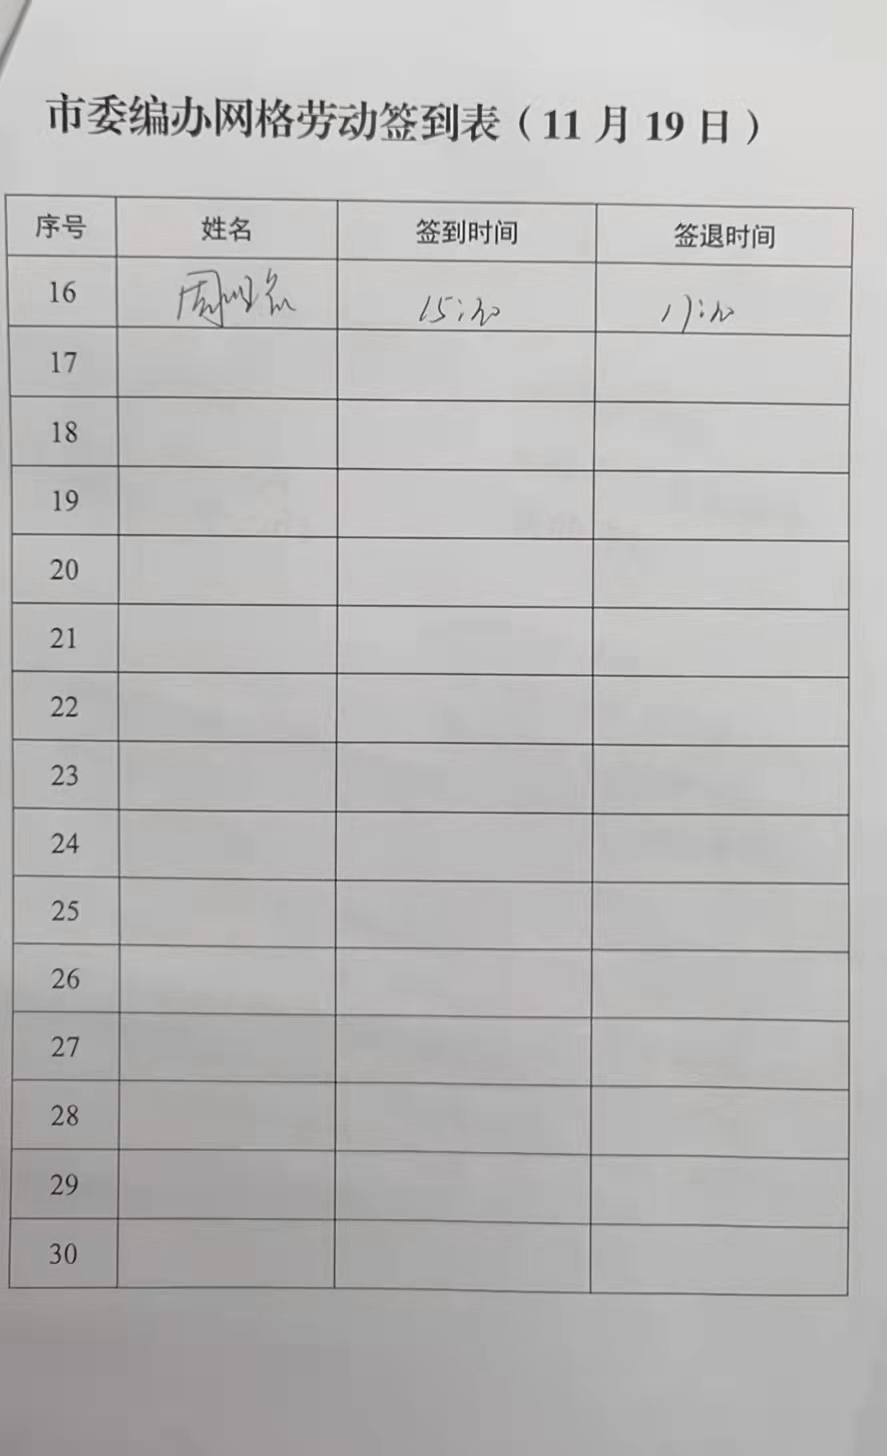 市委编办网格劳动签到表（11月19日）
序号 姓名 签到时间 签退时间
16 周 15:30 17:30
17
18
19
20
21
22
23
24
25
26
27
28
29
30